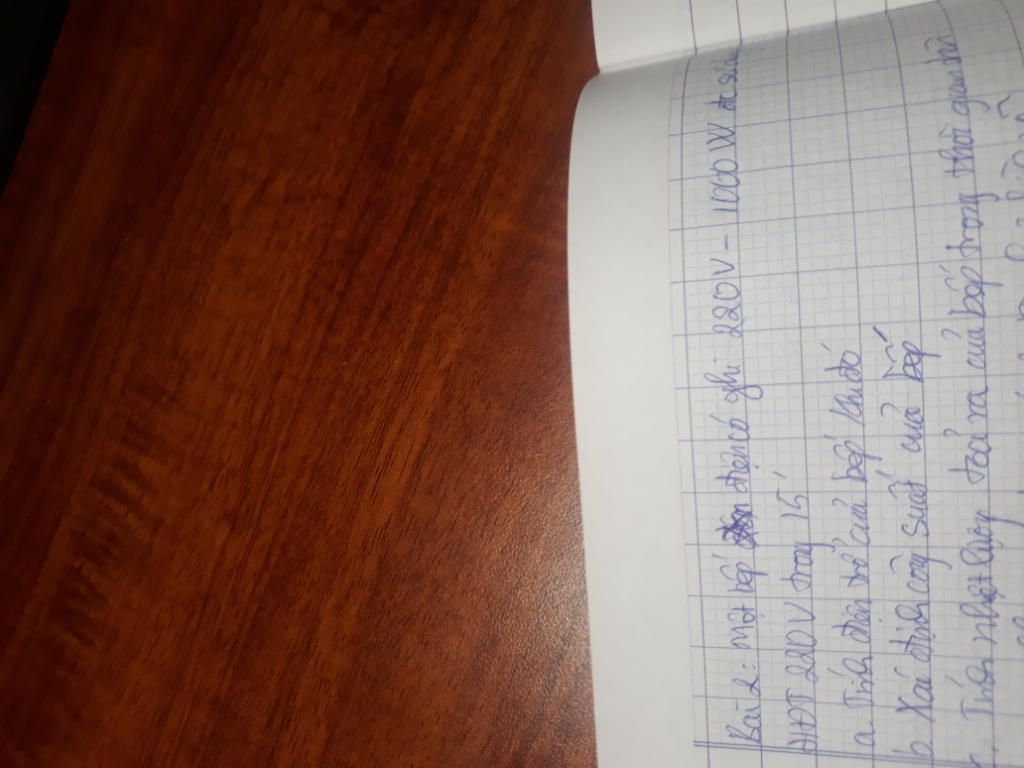 Bài 2: Một bếp điện có ghi 220V - 1000W
HĐT 220V trong 15'
a. Tính điện trở của bếp khi đó
b Xác định công suất của bếp
c. Tính nhiệt lượng toả ra của bếp trong thời gian